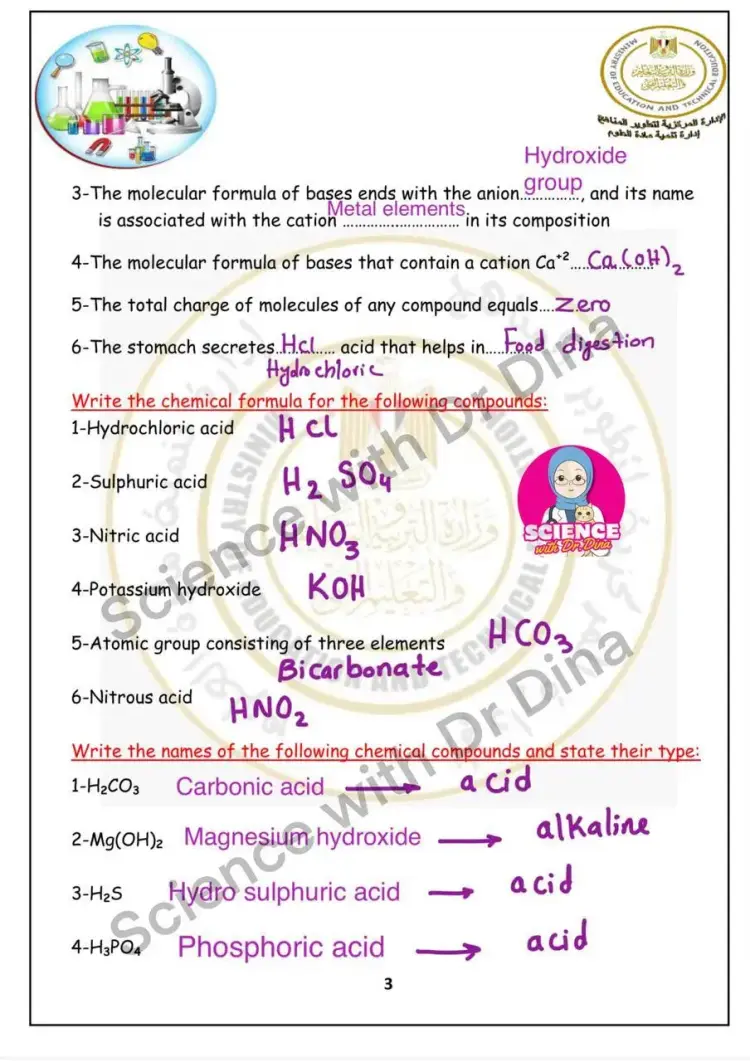 MINISTRY OF EDUCATION AND TECHNICAL EDUCATION
وزارة التربية والتعليم
والتعليم الفني
الإدارة المركزية لتطوير المناهج
إدارة تنمية مادة العلوم
Hydroxide
group
3-The molecular formula of bases ends with the anion……………, and its name
Metal elements
is associated with the cation ………………………… in its composition
4-The molecular formula of bases that contain a cation Ca⁺²…..Ca(OH)₂
5-The total charge of molecules of any compound equals….Zero
6-The stomach secretes HCl acid that helps in Food digestion
Hydrochloric
Write the chemical formula for the following compounds:
1-Hydrochloric acid HCl
2-Sulphuric acid H₂SO₄
3-Nitric acid HNO₃
SCIENCE
with Dr. Dina
4-Potassium hydroxide KOH
5-Atomic group consisting of three elements HCO₃
Bicarbonate
6-Nitrous acid HNO₂
Write the names of the following chemical compounds and state their type:
1-H₂CO₃ Carbonic acid → acid
2-Mg(OH)₂ Magnesium hydroxide → alkaline
3-H₂S Hydro sulphuric acid → acid
4-H₃PO₄ Phosphoric acid → acid
Science with Dr Dina
Science with Dr Dina
3